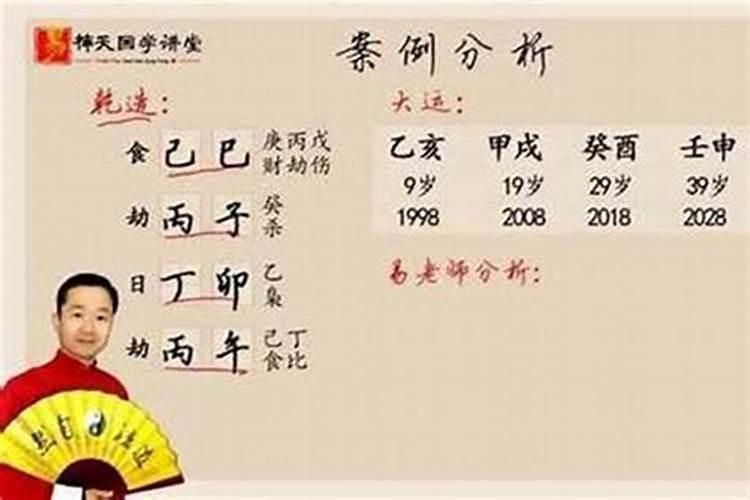 易
天国学讲堂
案例分析
乾造：
食 己巳 庚丙戊
财劫伤
劫 丙子 癸
杀
日 丁卯 乙
枭
劫 丙午 己丁
食比
大运：
乙亥 甲戌 癸酉 壬申
9岁 19岁 29岁 39岁
1998 2008 2018 2028
易老师分析：